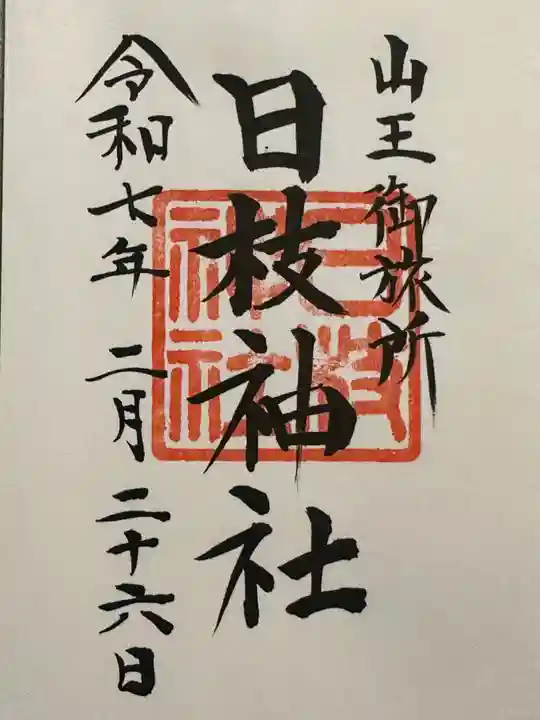 山王御旅所
日枝神社
令和七年 二月 二十六日
日枝神社